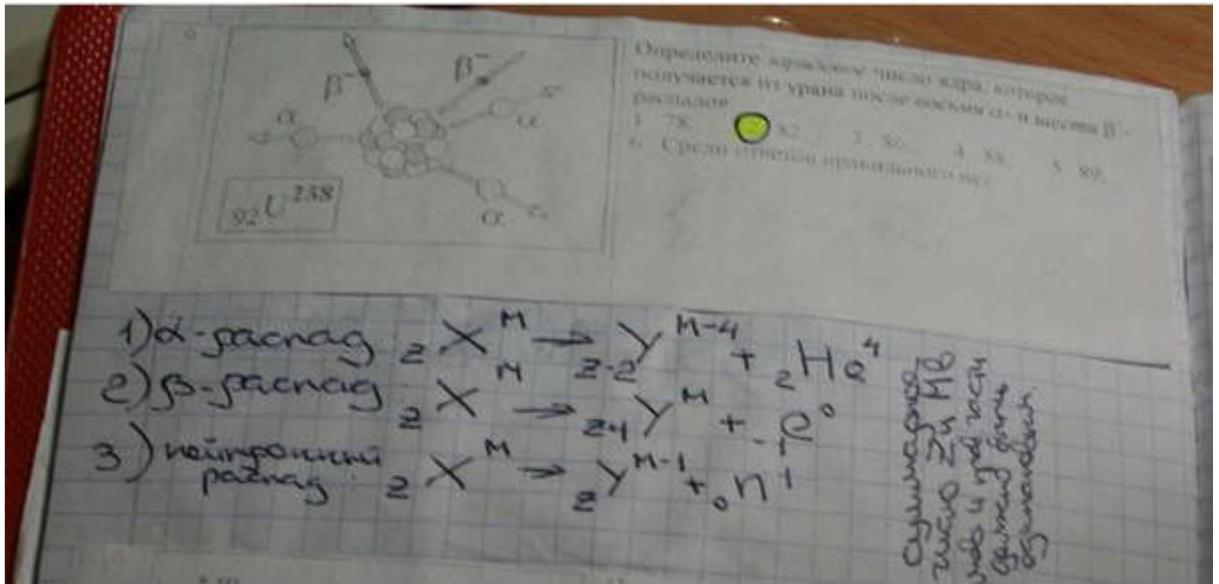 β⁻
β⁻
α
α
α
₉₂U²³⁸
Определите зарядовое число ядра, которое
получается из урана после восьми α- и шести β⁻-
распадов.
1. 78. 82. 3. 86. 4. 88. 5. 89.
6. Среди ответов правильного нет
1) α-распад zXᴹ → z-2Yᴹ⁻⁴ + ₂He⁴
2) β-распад zXᴹ → Yᴹ + ₋₁e⁰
3) нейтронный
распад zXᴹ → zYᴹ⁻¹ + ₀n¹
Суммарное
число Z и М в
лево и прав части
должно быть
одинаковым.